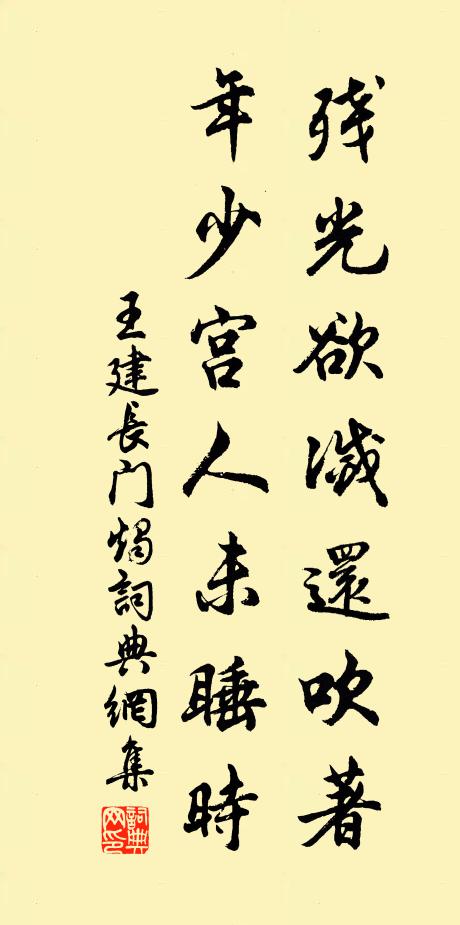 残光欲滅還吹著
年少宫人未睡時
王建長门燭詞典網集
詞典网印